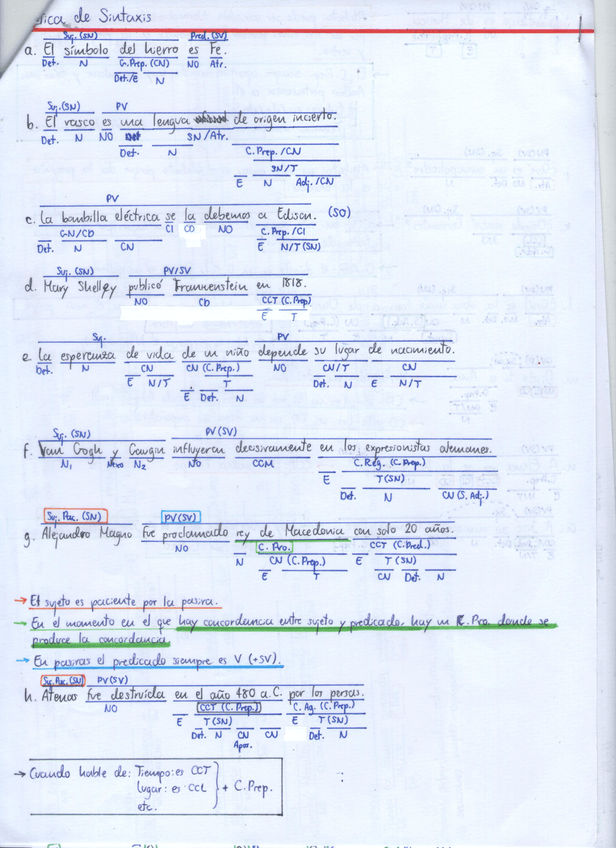 tica de Sintaxis
Suj. (SN) Pred. (SV)
a. El símbolo del hierro es Fe.
Det. N G. Prep. (CN) NO Atr.
Det./E N
Suj. (SN) PV
b. El vasco es una lengua de origen incierto.
Det. N NO SN/Atr.
Det. N C. Prep./CN
SN/T
E N Adj./CN
PV
c. La bombilla eléctrica se la debemos a Edison. (SO)
GN/CD CI CD NO C. Prep./CI
Det. N CN E N/T (SN)
Suj. (SN) PV/SV
d. Mary Shelley publicó Frankenstein en 1818.
NO CD CCT (C. Prep)
E T
Suj. PV
e. La esperanza de vida de un niño depende su lugar de nacimiento.
Det. N CN CN (C. Prep.) NO CN/T CN
E N/T T Det. N E N/T
E Det. N
Suj. (SN) PV (SV)
f. Van Gogh y Gaugin influyeron decisivamente en los expresionistas alemanes.
N1 Nexo N2 NO CCM C. Reg. (C. Prep.)
E T (SN)
Det. N CN (S. Adj.)
Suj. Pac. (SN) PV (SV)
g. Alejandro Magno fue proclamado rey de Macedonia con solo 20 años.
NO C. Pro. CCT (C. Pred.)
N CN (C. Prep.) E T (SN)
E T CN Det. N
→ El sujeto es paciente por la pasiva.
→ En el momento en el que hay concordancia entre sujeto y predicado, hay un C. Pro. donde se
produce la concordancia
→ En pasivas el predicado siempre es V (+SV).
Suj. Pac. (SN) PV (SV)
h. Atenas fue destruida en el año 480 a.C. por los persas.
NO CCT (C. Prep.) C. Ag. (C. Prep.)
E T (SN) E T (SN)
Det. N CN CN Det. N
Apos.
→ Cuando hable de: Tiempo: es CCT
Lugar: es CCL + C. Prep.
etc.